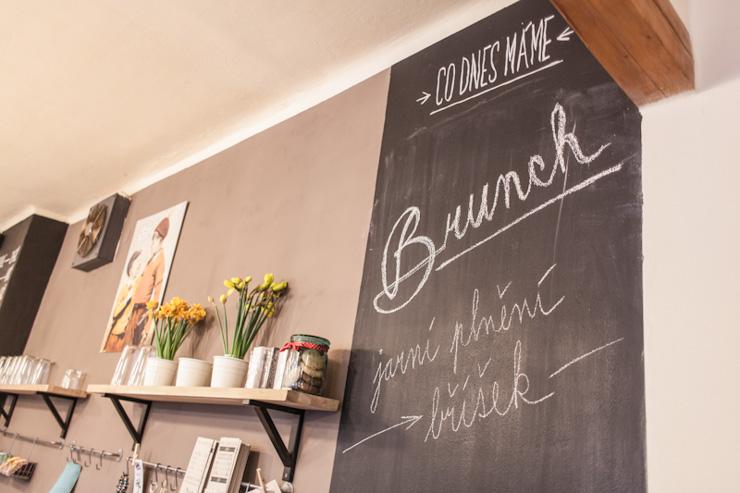 CO DNES MÁME
Brunch
jarní plnění
bříšek